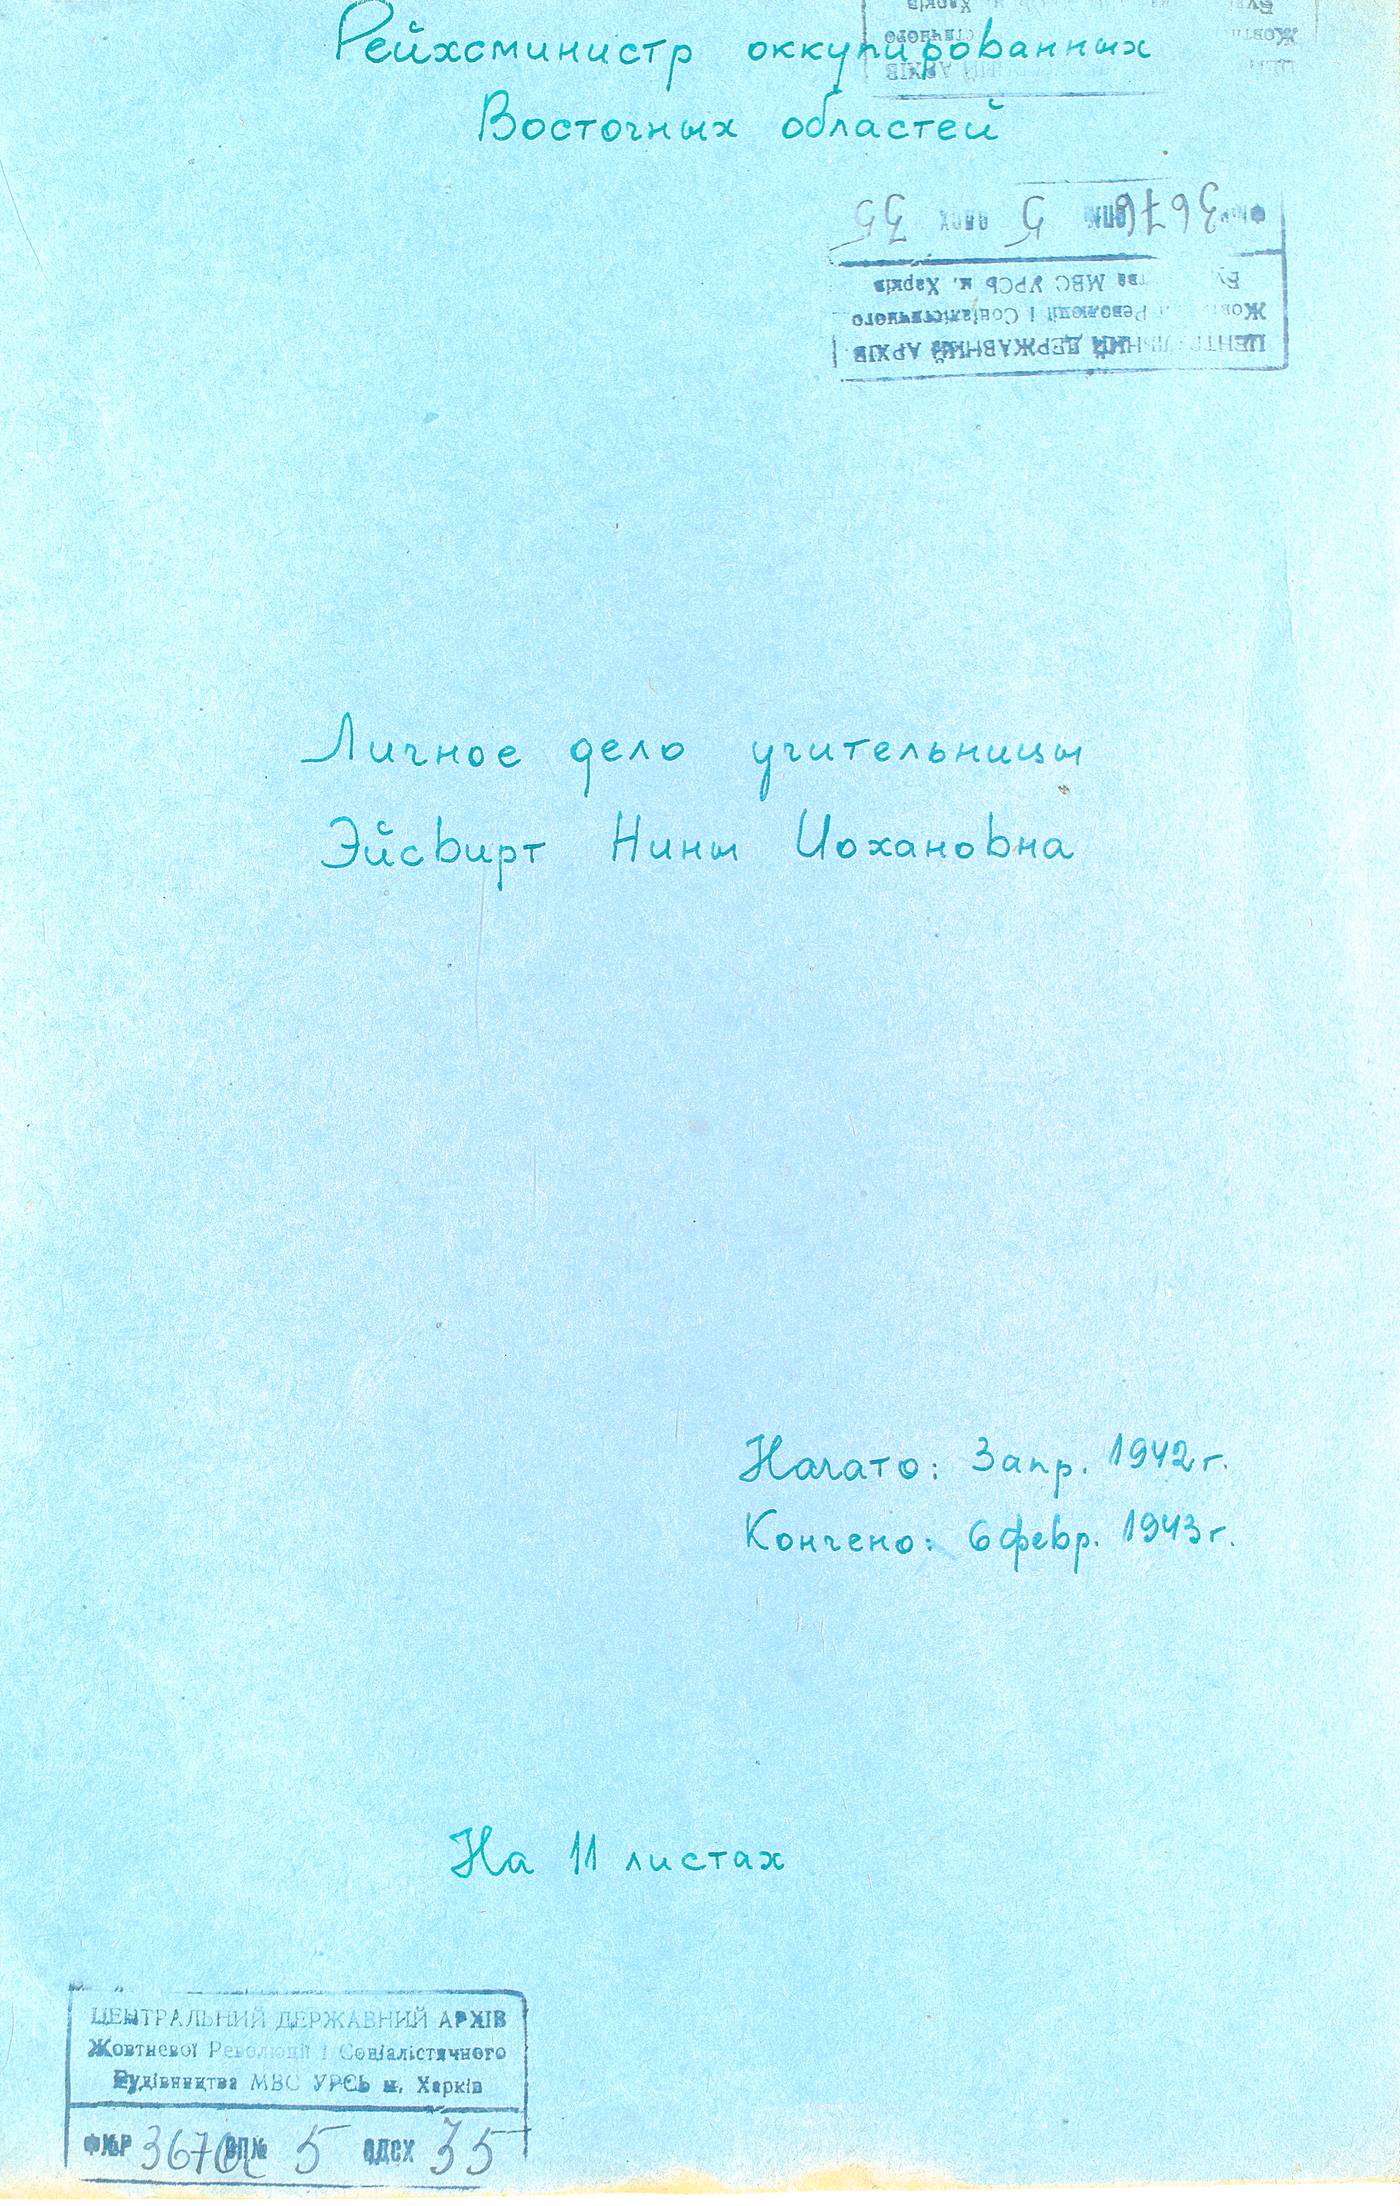 Рейхсминистр оккупированных
Восточных областей
3676 ОП№ 5 ОДСХ 35
МВС УРСР м. Харків
Революції і Соціалістичного
ЦЕНТРАЛЬНИЙ ДЕРЖАВНИЙ АРХІВ
Личное дело учительницы
Эйсвирт Нины Иохановна
Начато: 3 апр. 1942 г.
Кончено: 6 февр. 1943 г.
На 11 листах
ЦЕНТРАЛЬНИЙ ДЕРЖАВНИЙ АРХІВ
Жовтневої Революції і Соціалістичного
Будівництва МВС УРСР м. Харків
Ф№Р 3676 ОП№ 5 ОДСХ 35